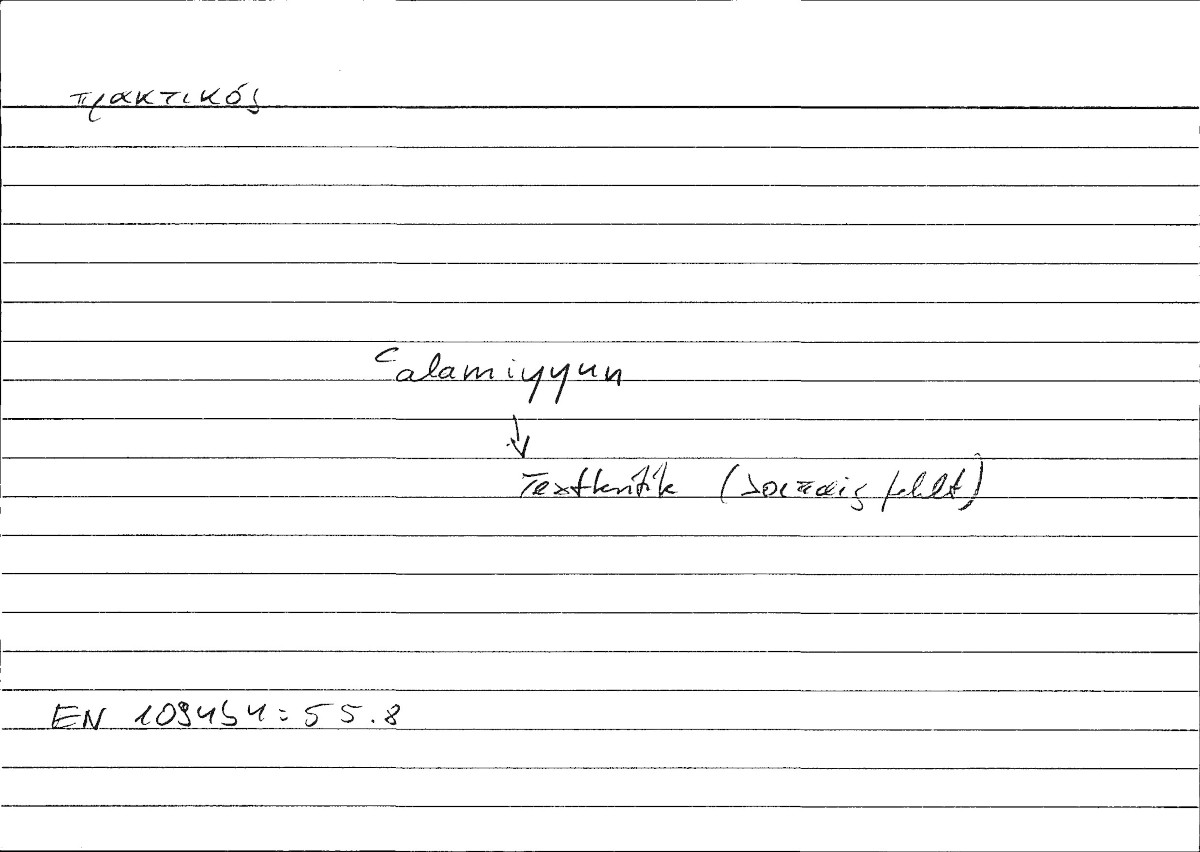 πρακτικός
ʿalamiyyun
↓
Textkritik (λοιπαις fehlt)
EN 1094b4 = 55.8